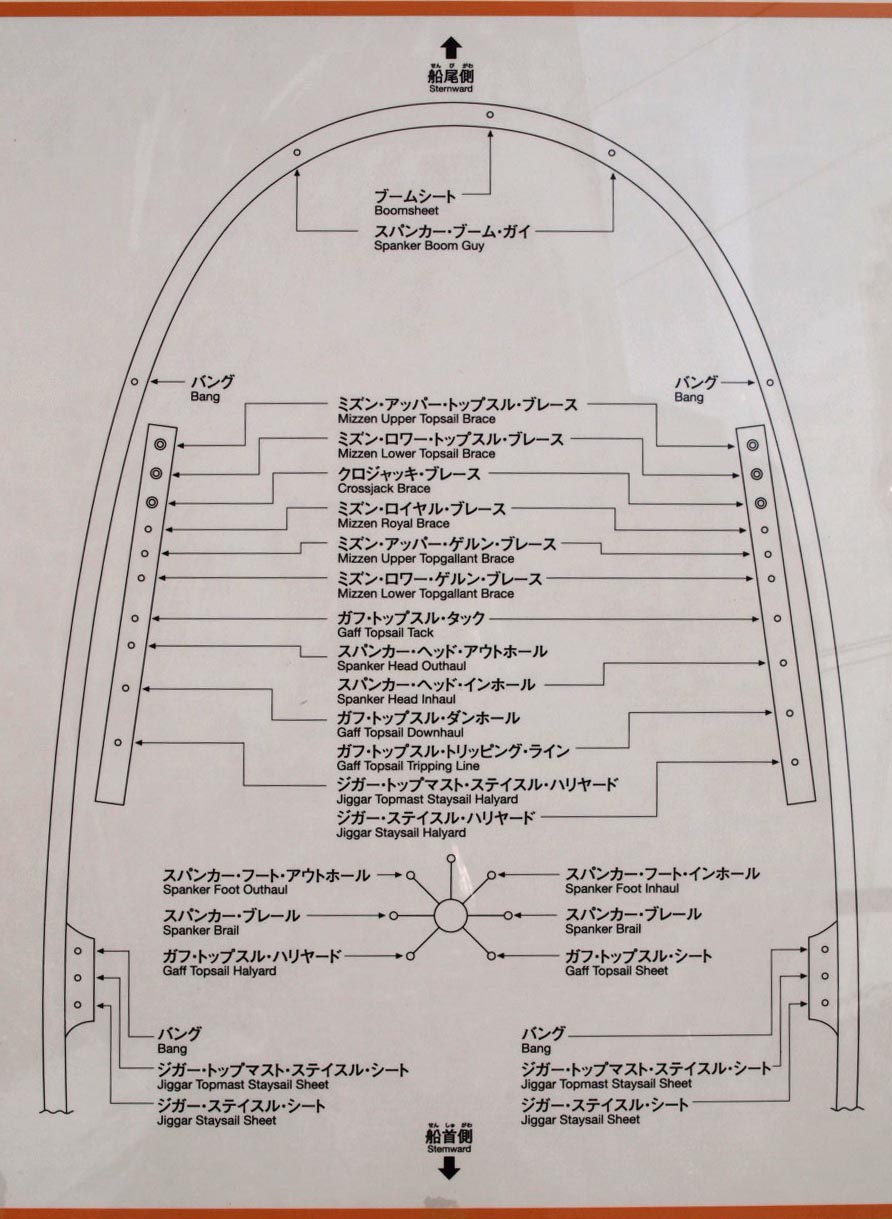 せんびがわ
船尾側
Sternward
ブームシート
Boomsheet
スパンカー・ブーム・ガイ
Spanker Boom Guy
バング
Bang
バング
Bang
ミズン・アッパー・トップスル・ブレース
Mizzen Upper Topsail Brace
ミズン・ロワー・トップスル・ブレース
Mizzen Lower Topsail Brace
クロジャッキ・ブレース
Crossjack Brace
ミズン・ロイヤル・ブレース
Mizzen Royal Brace
ミズン・アッパー・ゲルン・ブレース
Mizzen Upper Topgallant Brace
ミズン・ロワー・ゲルン・ブレース
Mizzen Lower Topgallant Brace
ガフ・トップスル・タック
Gaff Topsail Tack
スパンカー・ヘッド・アウトホール
Spanker Head Outhaul
スパンカー・ヘッド・インホール
Spanker Head Inhaul
ガフ・トップスル・ダンホール
Gaff Topsail Downhaul
ガフ・トップスル・トリッピング・ライン
Gaff Topsail Tripping Line
ジガー・トップマスト・ステイスル・ハリヤード
Jiggar Topmast Staysail Halyard
ジガー・ステイスル・ハリヤード
Jiggar Staysail Halyard
スパンカー・フート・アウトホール
Spanker Foot Outhaul
スパンカー・フート・インホール
Spanker Foot Inhaul
スパンカー・ブレール
Spanker Brail
スパンカー・ブレール
Spanker Brail
ガフ・トップスル・ハリヤード
Gaff Topsail Halyard
ガフ・トップスル・シート
Gaff Topsail Sheet
バング
Bang
ジガー・トップマスト・ステイスル・シート
Jiggar Topmast Staysail Sheet
ジガー・ステイスル・シート
Jiggar Staysail Sheet
バング
Bang
ジガー・トップマスト・ステイスル・シート
Jiggar Topmast Staysail Sheet
ジガー・ステイスル・シート
Jiggar Staysail Sheet
せんしゅがわ
船首側
Stemward